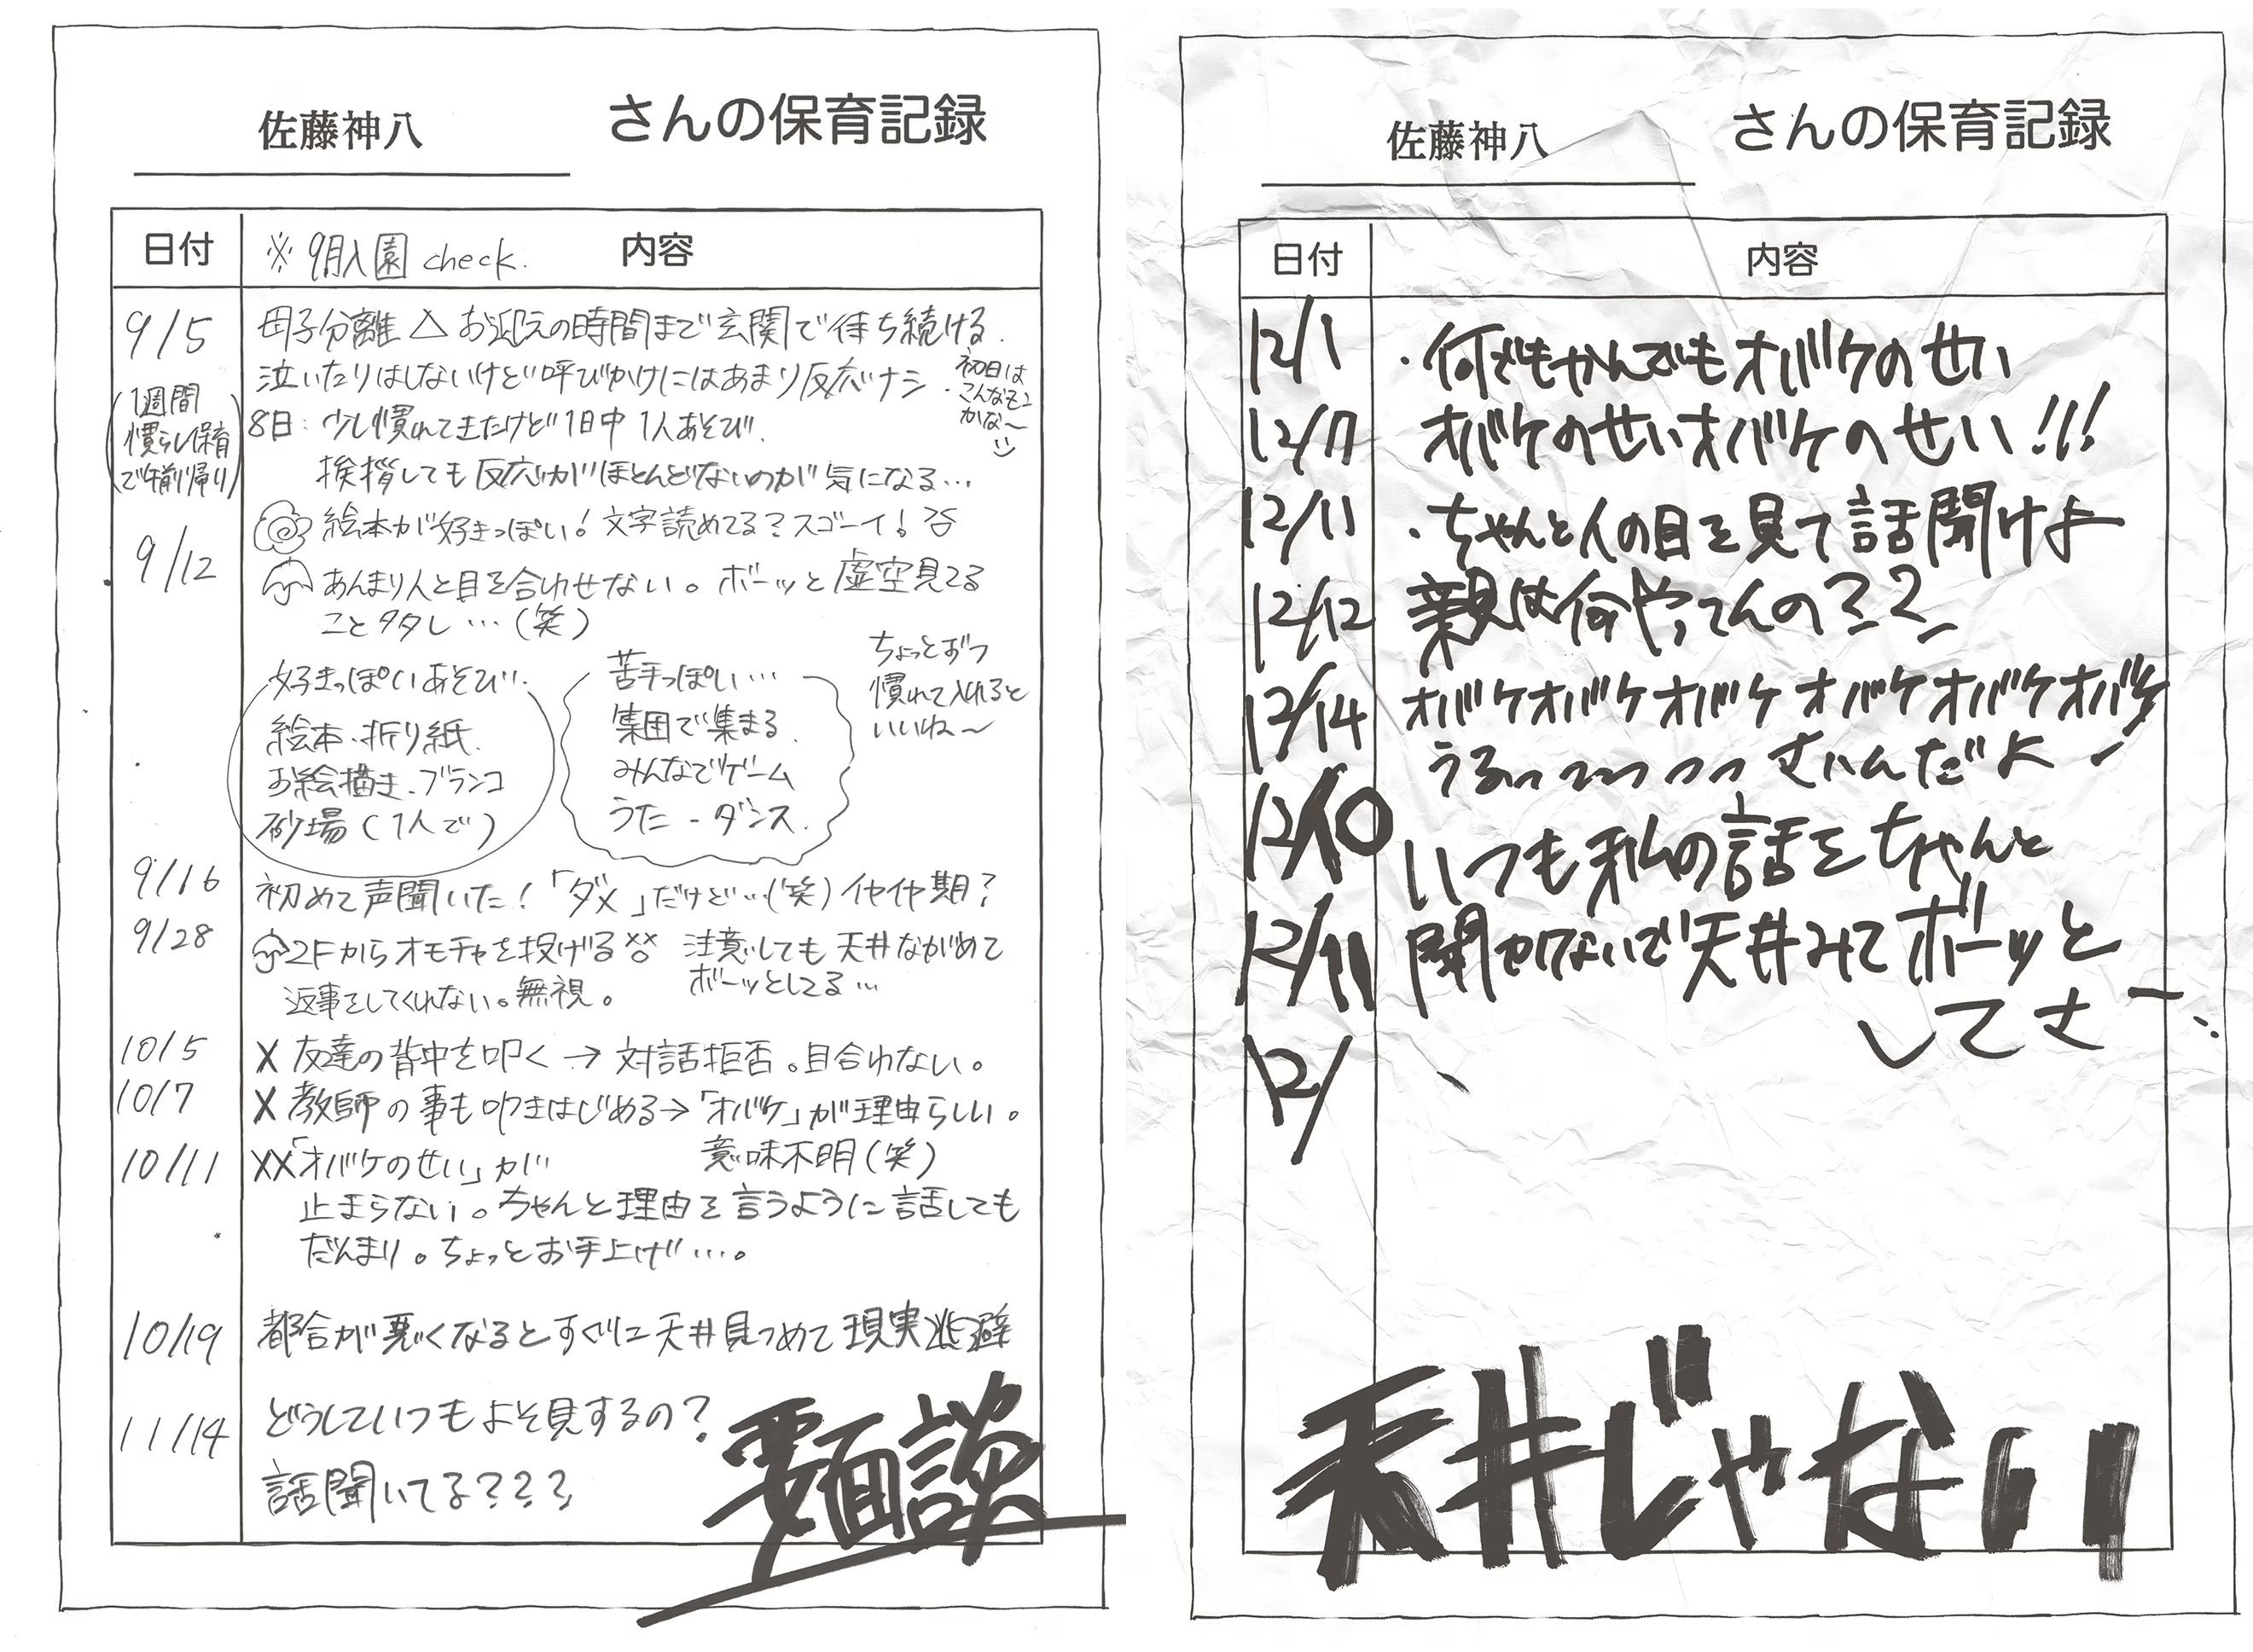 佐藤神八 さんの保育記録
日付 ※9月入園check. 内容
9/5 母子分離 △ お迎えの時間まで玄関で待ち続ける.
泣いたりはしないけど呼びかけにはあまり反応ナシ.
初日は
こんなモン
かな〜
(1週間
慣らし保育
で午前帰り)
8日: 少し慣れてきたけど1日中1人あそび.
挨拶しても反応がほとんどないのが気になる…
9/12 絵本が好きっぽい! 文字読めてる? スゴーイ!
あんまり人と目を合わせない。ボーッと虚空見てる
こと多し…(笑)
好きっぽいあそび..
絵本.折り紙.
お絵描き.ブランコ
砂場(1人で)
苦手っぽい…
集団で集まる.
みんなでゲーム
うた-ダンス.
ちょっとずつ
慣れて入れると
いいね〜
9/16 初めて声聞いた!「ダメ」だけど…(笑)イヤイヤ期?
9/28 2Fからオモチャを投げる 注意しても天井ながめて
返事をしてくれない。無視。 ボーッとしてる…
10/5 X 友達の背中を叩く→対話拒否。目合わない。
10/7 X 教師の事も叩きはじめる→「オバケ」が理由らしい。
意味不明(笑)
10/11 XX「オバケのせい」が
止まらない。ちゃんと理由を言うように話しても
だんまり。ちょっとお手上げ…。
10/19 都合が悪くなるとすぐに天井見つめて現実逃避
11/14 どうしていつもよそ見するの?
話聞いてる???
要面談
佐藤神八 さんの保育記録
日付 内容
12/1 ・何でもかんでもオバケのせい
12/7 オバケのせいオバケのせい!!!
12/11 ・ちゃんと人の目を見て話聞けよ
12/12 親は何やってんの??
12/14 オバケオバケオバケオバケオバケオバケ
うるっっっっっさいんだよ
12/10 いつも私の話をちゃんと
12/11 聞かないで天井みてボーッと
してさー…
12/
天井じゃない